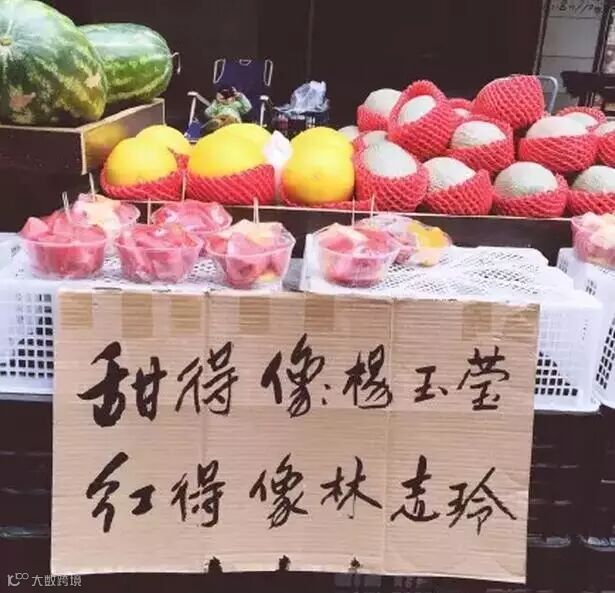 甜得像杨玉莹
红得像林志玲
大数跨境